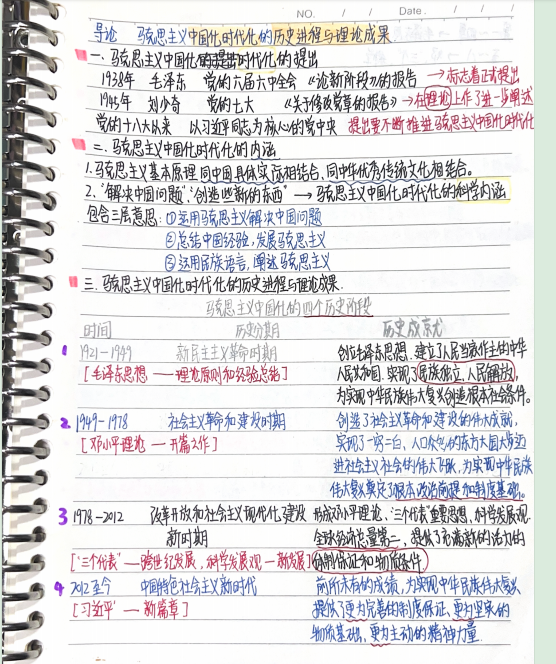 NO.
Date.
导论 马克思主义中国化时代化的历史进程与理论成果
一.马克思主义中国化时代化的提出
1938年 毛泽东 党的六届六中全会 《论新阶段》的报告 →标志着正式提出
1945年 刘少奇 党的七大 《关于修改党章的报告》→在理论上作了进一步阐述
党的十八大以来 以习近平同志为核心的党中央 提出要不断推进马克思主义中国化时代化
二.马克思主义中国化时代化的内涵
1.马克思主义基本原理同中国具体实际相结合、同中华优秀传统文化相结合。
2."解决中国问题""创造些新的东西" → 马克思主义中国化时代化的科学内涵
包含三层意思:①运用马克思主义解决中国问题
②总结中国经验,发展马克思主义
③运用民族语言,阐述马克思主义
三.马克思主义中国化时代化的历史进程与理论成果.
马克思主义中国化的四个历史阶段
时间 历史分期 历史成就
1 1921-1949 新民主主义革命时期 创立毛泽东思想.建立了人民当家作主的中华
[毛泽东思想 — 理论原则和经验总结] 人民共和国.实现了民族独立、人民解放,
为实现中华民族伟大复兴创造根本社会条件。
2 1949-1978 社会主义革命和建设时期 创造了社会主义革命和建设的伟大成就,
[邓小平理论 — 开篇之作] 实现了一穷二白、人口众多的东方大国大步迈
进社会主义社会的伟大飞跃,为实现中华民族
伟大复兴奠定了根本政治前提和制度基础。
3 1978-2012 改革开放和社会主义现代化建设 形成邓小平理论、"三个代表"重要思想、科学发展观.
新时期 全球经济总量第二,提供了充满新的活力的
["三个代表" — 跨世纪发展,科学发展观 — 新发展] 体制保证和物质条件.
4 2012至今 中国特色社会主义新时代 前所未有的成绩,为实现中华民族伟大复兴
[习近平 — 新篇章] 提供了更为完善的制度保证、更为坚实的
物质基础、更为主动的精神力量.